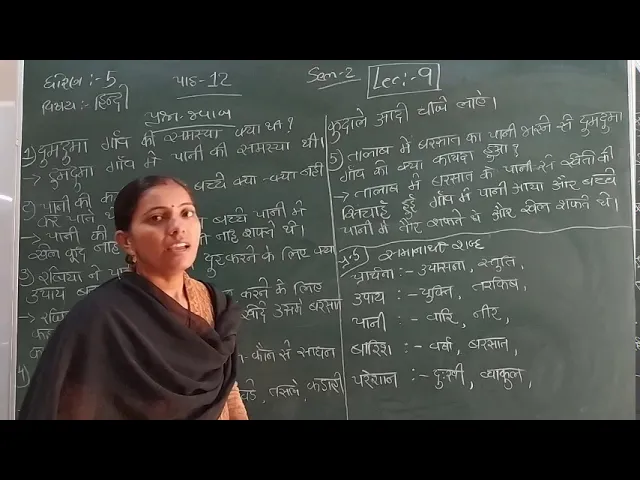 धोरण :- 5
पाठ-12
Sem-2
Lec:-9
विषय:- हिन्दी
प्रश्न-जवाब
1) दुमदुमा गाँव की समस्या क्या थी?
→ दुमदुमा गाँव में पानी की समस्या थी।
2) पानी की बच्चे क्या-क्या नहीं
कर पाते
→ पानी की बच्चे पानी में
खेल कूद नहीं नहि सकते थे।
3) दूर करने के लिए क्या
उपाय
करने के लिए
उसमें बरसात
4) कौन से साधन
तसले, कुदाली
कुदाले आदी चीजे लाए।
5) तालाब में बरसात का पानी भरने से दुमदुमा
गाँव को क्या फायदा हुआ?
→ तालाब में बरसात के पानी से खेती की
सिंचाई हुई गाँव में पानी आया और बच्चे
पानी में तैर सकते थे और खेल सकते थे।
प्र.5) समानार्थी शब्द
प्रार्थना :- उपासना, स्तुति,
उपाय :- युक्ति, तरकिब,
पानी :- वारि, नीर,
बारिश :- वर्षा, बरसात,
परेशान :- दुःखी, व्याकुल,